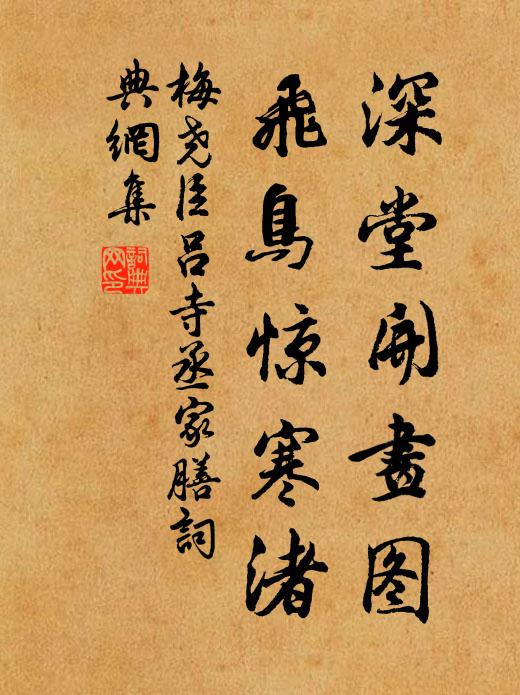 深堂開畫图
飛鳥惊寒渚
梅尧臣吕寺丞家膳詞
典網集
詞典
网印